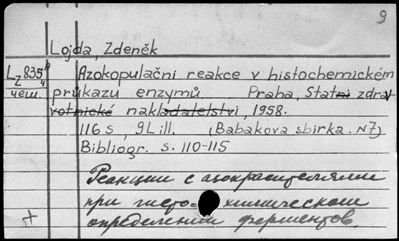 9
Lojda, Zdeněk
Lz 835/4 Azokopulační reakce v histochemickém
чеш. průkazu enzymů Praha, Statní zdravotnické nakladatelství, 1958.
116 s, 9 L ill. (Babakova sbirka. N7)
Bibliogr. s. 110-115
Реакции с азокрасителями
при гисто-химическом
определении ферментов.
+